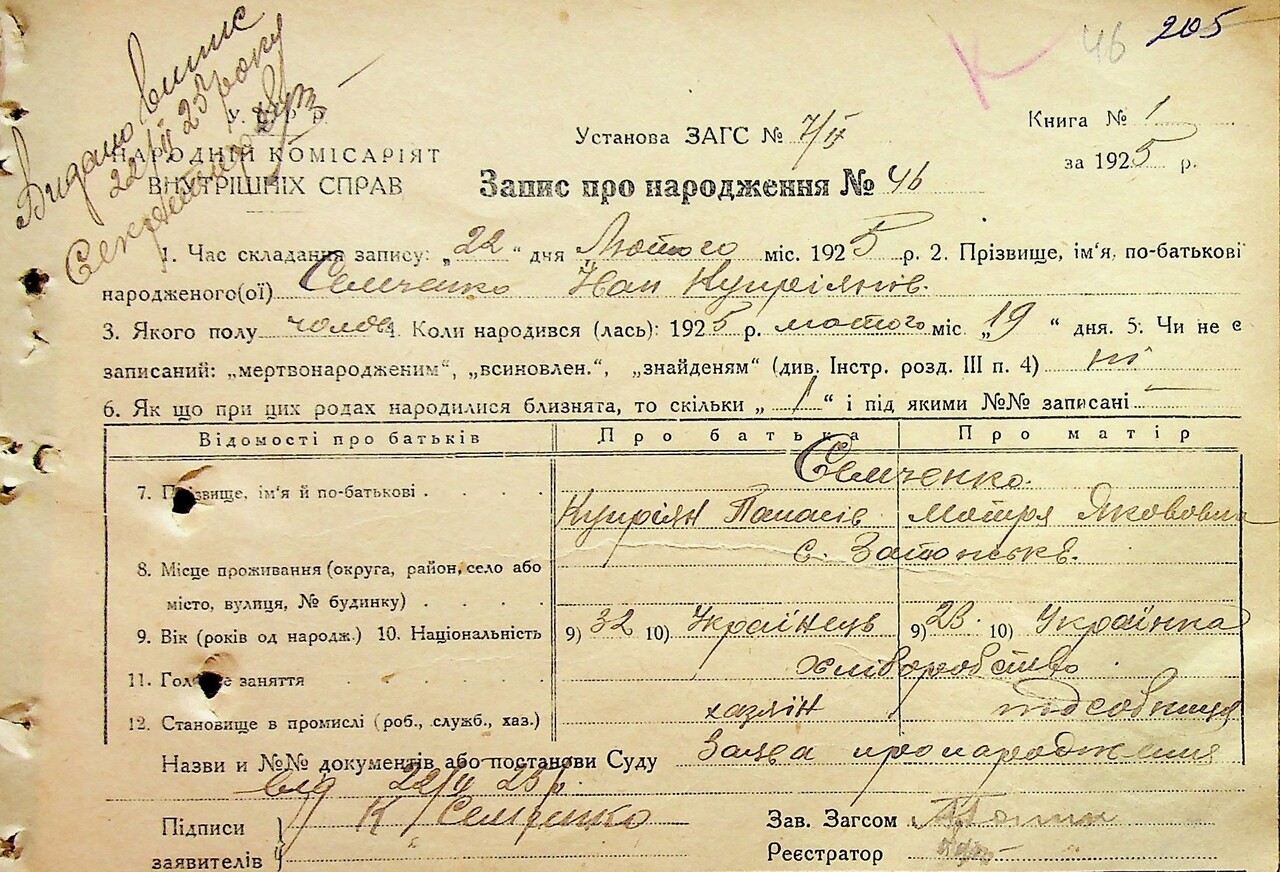 К 46 205
Видано витяг
22/II 25 року
У. С. Р. Р.
НАРОДНІЙ КОМІСАРІЯТ
ВНУТРІШНІХ СПРАВ
Установа ЗАГС № 7/IX
Книга № 1
за 1925 р.
Запис про народження № 46
1. Час складання запису: „22“ дня Лютого міс. 1925 р. 2. Прізвище, ім'я, по-батькові
народженого(ої) Семченко Іван Купріянів.
3. Якого полу чолов 4. Коли народився (лась): 1925 р. лютого міс. „19“ дня. 5. Чи не є
записаний: „мертвонародженим“, „всиновлен.“, „знайденям“ (див. Інстр. розд. III п. 4) ні
6. Як що при цих родах народилися близнята, то скільки „1“ і під якими №№ записані —
Відомості про батьків Про батька Про матір
Семченко.
7. Прізвище, ім'я й по-батькові Купріян Панасів Мотря Якововна
с. Затонське.
8. Місце проживання (округа, район, село або
місто, вулиця, № будинку)
9. Вік (років од народж.) 10. Національність 9) 32 10) Українець 9) 28. 10) Українка
хліборобство
11. Головне заняття
12. Становище в промислі (роб., служб., хаз.) хазяїн підсобниця
Назви и №№ документів або постанови Суду Заява про народження
від 22/II 25 р.
Підписи К Семченко Зав. Загсом
заявителів Реєстратор